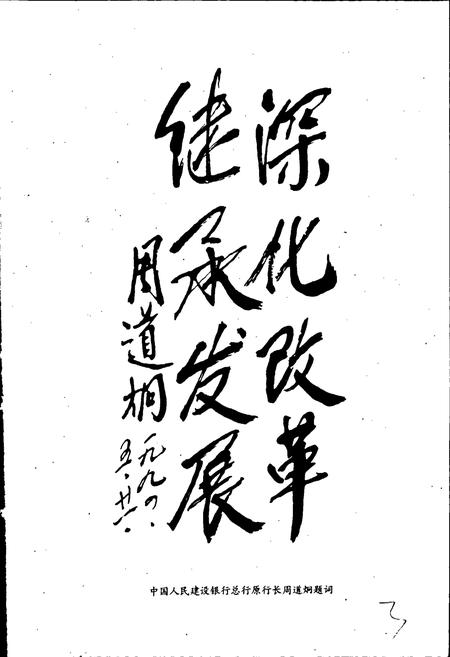 深化改革
继承发展
周道炯
一九九四、
五、廿一、
中国人民建设银行总行原行长周道炯题词